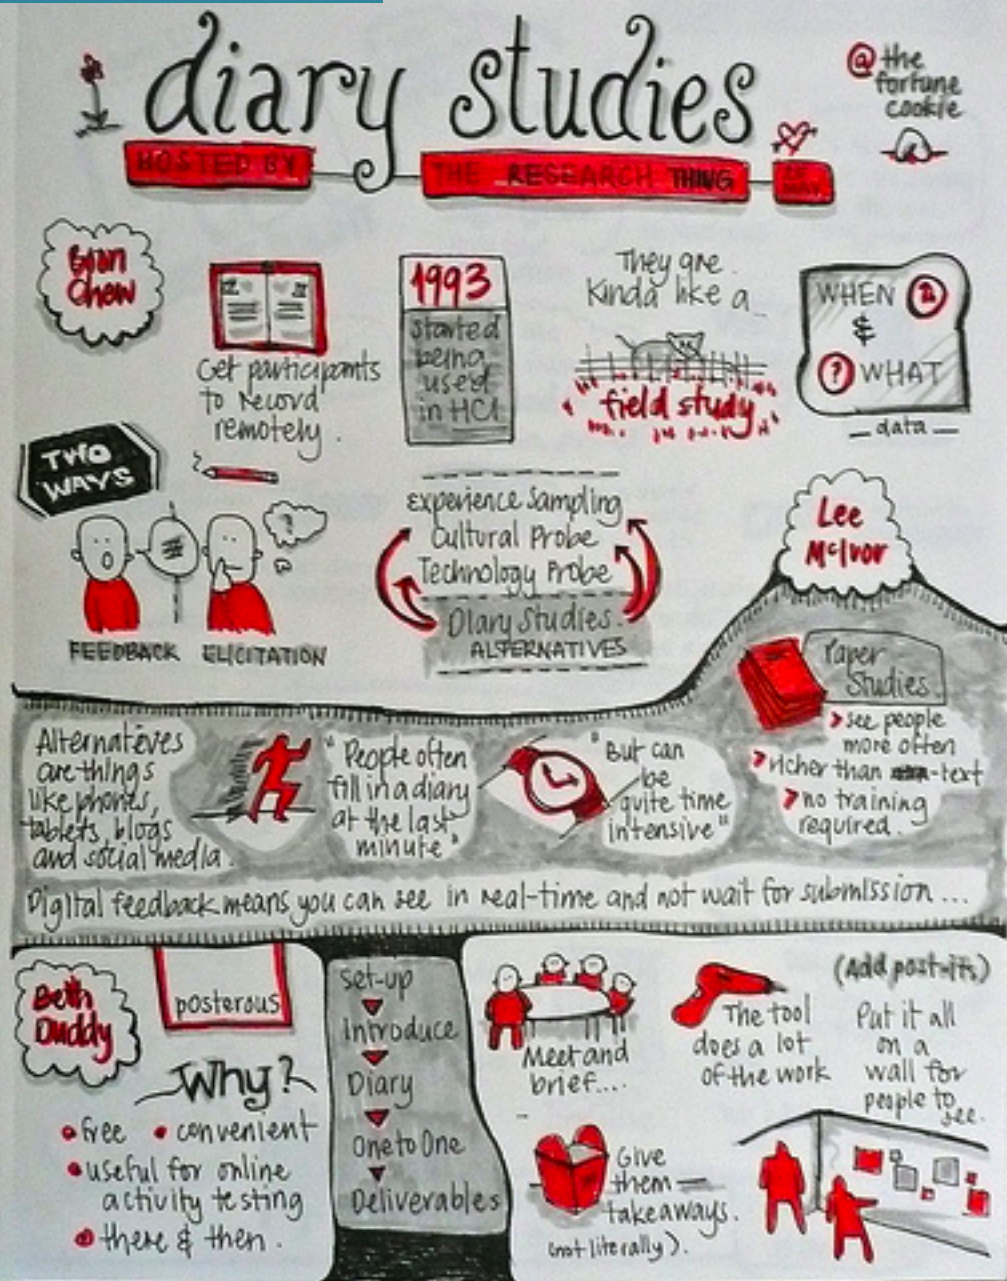 diary studies
@ the
fortune
cookie
HOSTED BY
THE RESEARCH THING
MAY
Chow
Get participants
to record
remotely.
1993
started
being
used
in HCI
They are
kinda like a
field study
WHEN
&
? WHAT
data
TWO
WAYS
FEEDBACK
ELICITATION
Experience Sampling
Cultural Probe
Technology Probe
Diary Studies.
ALTERNATIVES
Lee
McIvor
Paper
Studies.
> see people
more often
> richer than -text
> no training
required.
Alternatives
are things
like phones,
tablets, blogs
and social media.
"People often
fill in a diary
at the last
minute"
"But can
be
quite time
intensive"
Digital feedback means you can see in real-time and not wait for submission...
Beth
Duddy
posterous
Why?
• free • convenient
• useful for online
activity testing
• there & then.
set-up
Introduce
Diary
One to One
Deliverables
Meet and
brief....
The tool
does a lot
of the work
(Add post-its)
Put it all
on a
wall for
people to
see.
Give
them
takeaways.
(not literally).